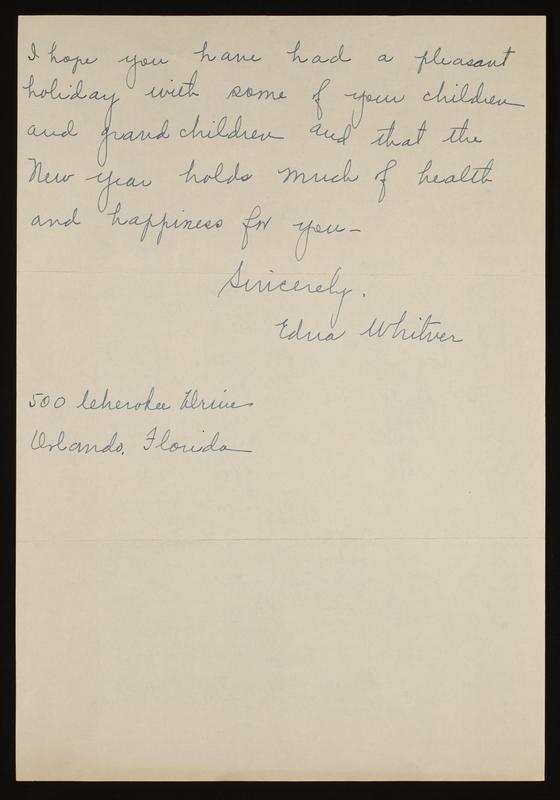 I hope you have had a pleasant
holiday with some of your children
and grand children and that the
New year holds much of health
and happiness for you–
Sincerely,
Edna Whitver
500 Cherokee Drive
Orlando, Florida